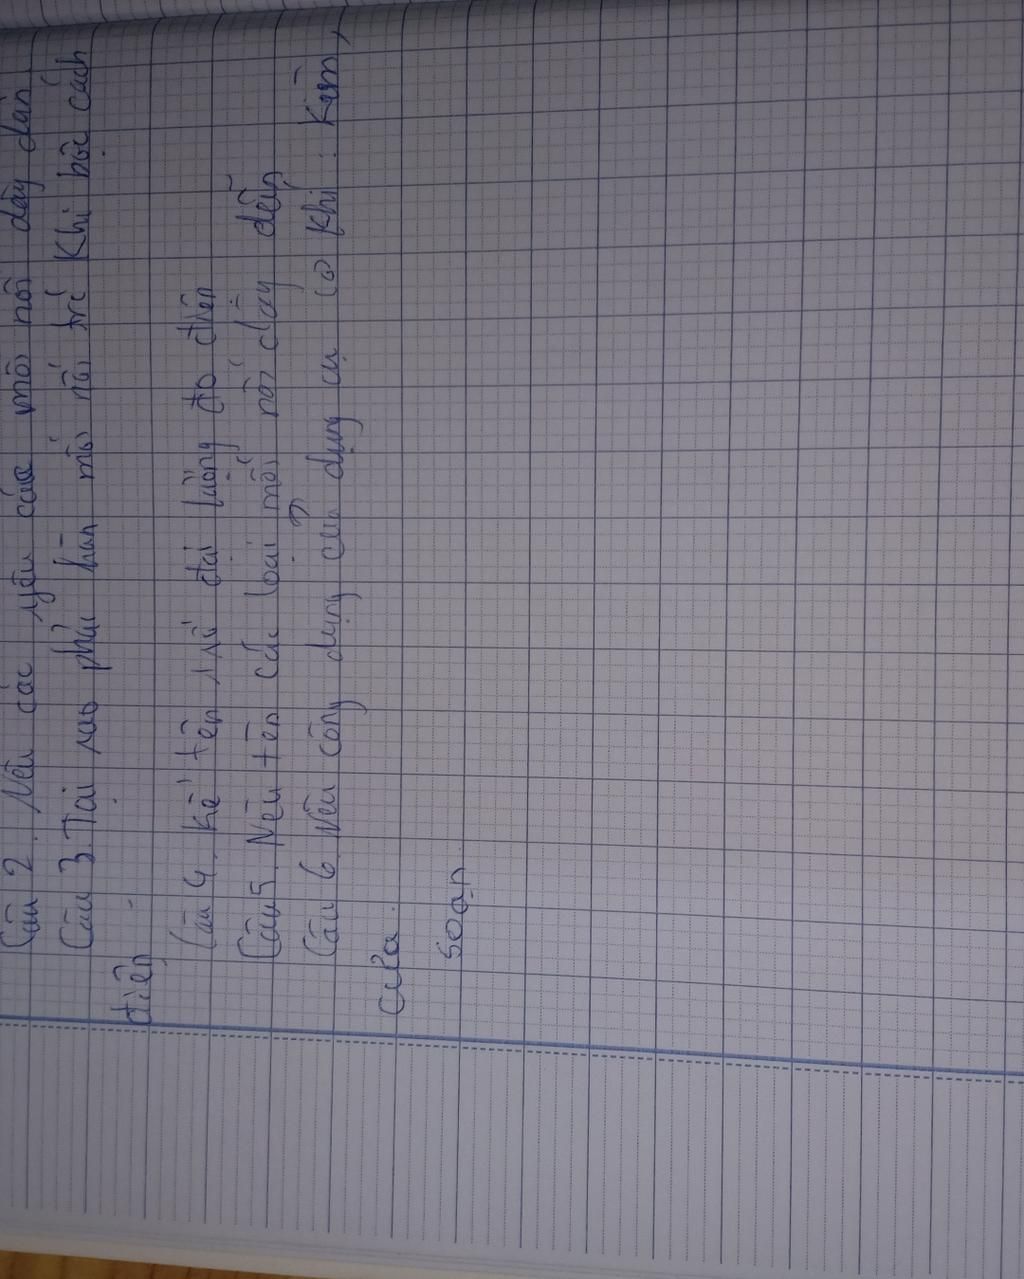 Câu 2. Nêu các yêu cầu của mối nối dây dẫn.
Câu 3. Tại sao phải hàn mối nối trc khi bọc cách
điện.
Câu 4. Kể tên 1 số đại lượng đo điện
Câu 5. Nêu tên các loại mối nối dây dẫn
Câu 6. Nêu công dụng của dụng cụ cơ khí: Kìm,
cưa.
soạn